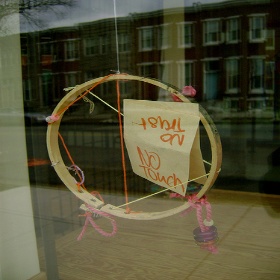 No
Trust
NO
Touch